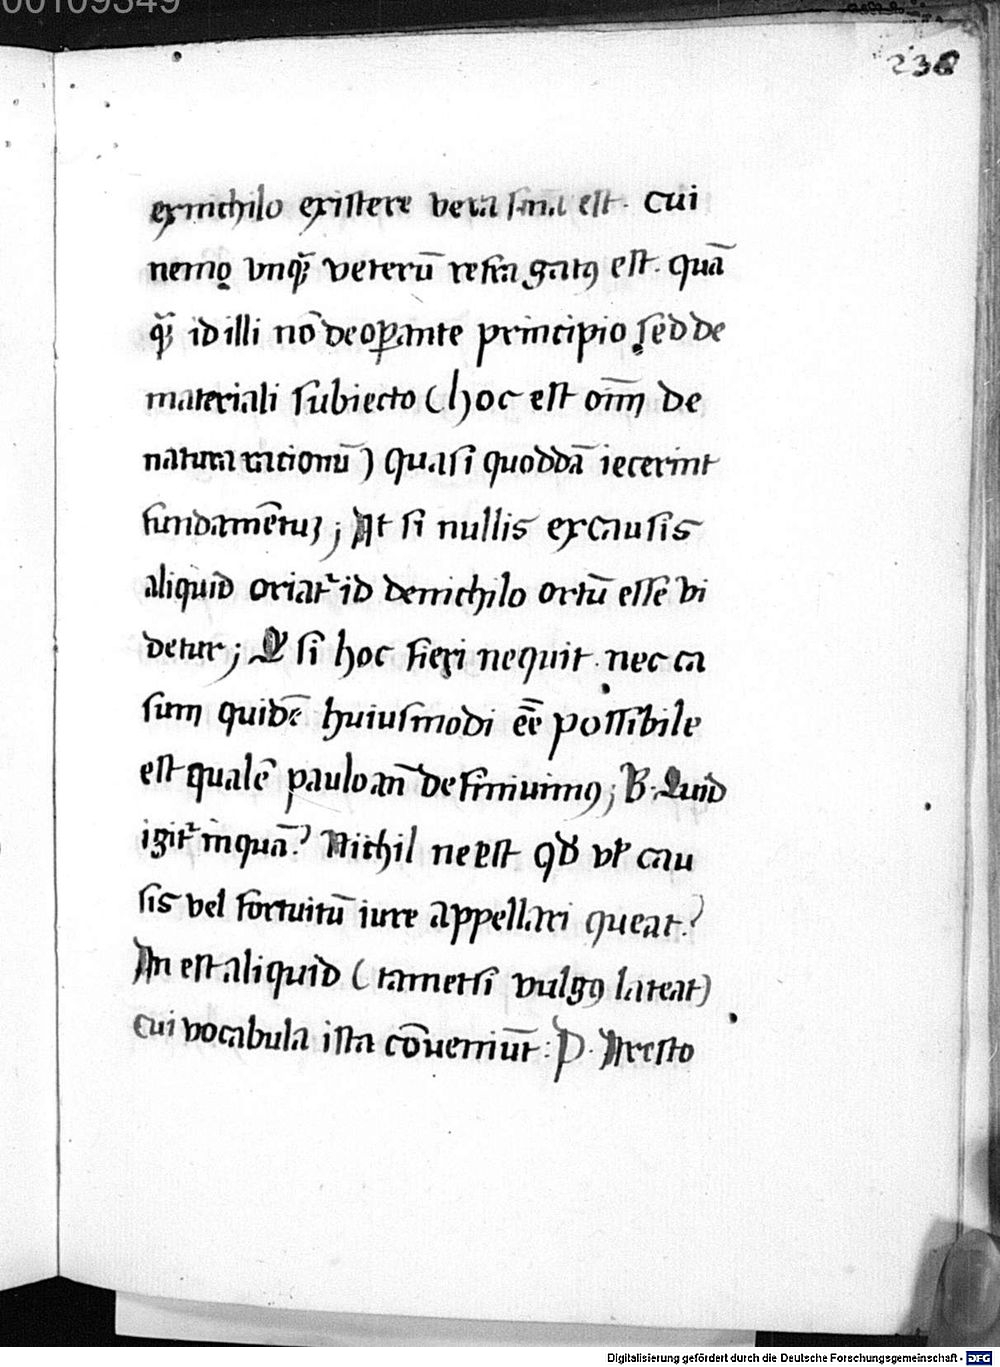 00109349
236
exnichilo existere vera sn̄ia est. Cui
nemo vnqꝫ̄ veterū refragatꝰ est. quā
qꝫ̄ id illi nō deoꝑante principio sed de
materiali subiecto (hoc est om̄ de
natura racionū) Quasi quoddā iecerint
fundamētuꝫ; At si nullis excausis
aliquid oriat᷑ id denichilo ortū esse vi
detur; Qꝫ si hoc fieri nequit. nec ca
sum quidē huiusmodi eē̄ possibile
est qualē paulo an̄ definiuimꝰ; B. Quid
igit᷑ inquā? Nichil ne est qđ vł cau
sis vel fortuitū iure appellari queat?
An est aliquid (tametsi vulgꝰ lateat)
cui vocabula ista cōueniūt: P. Aresto
Digitalisierung gefördert durch die Deutsche Forschungsgemeinschaft - DFG